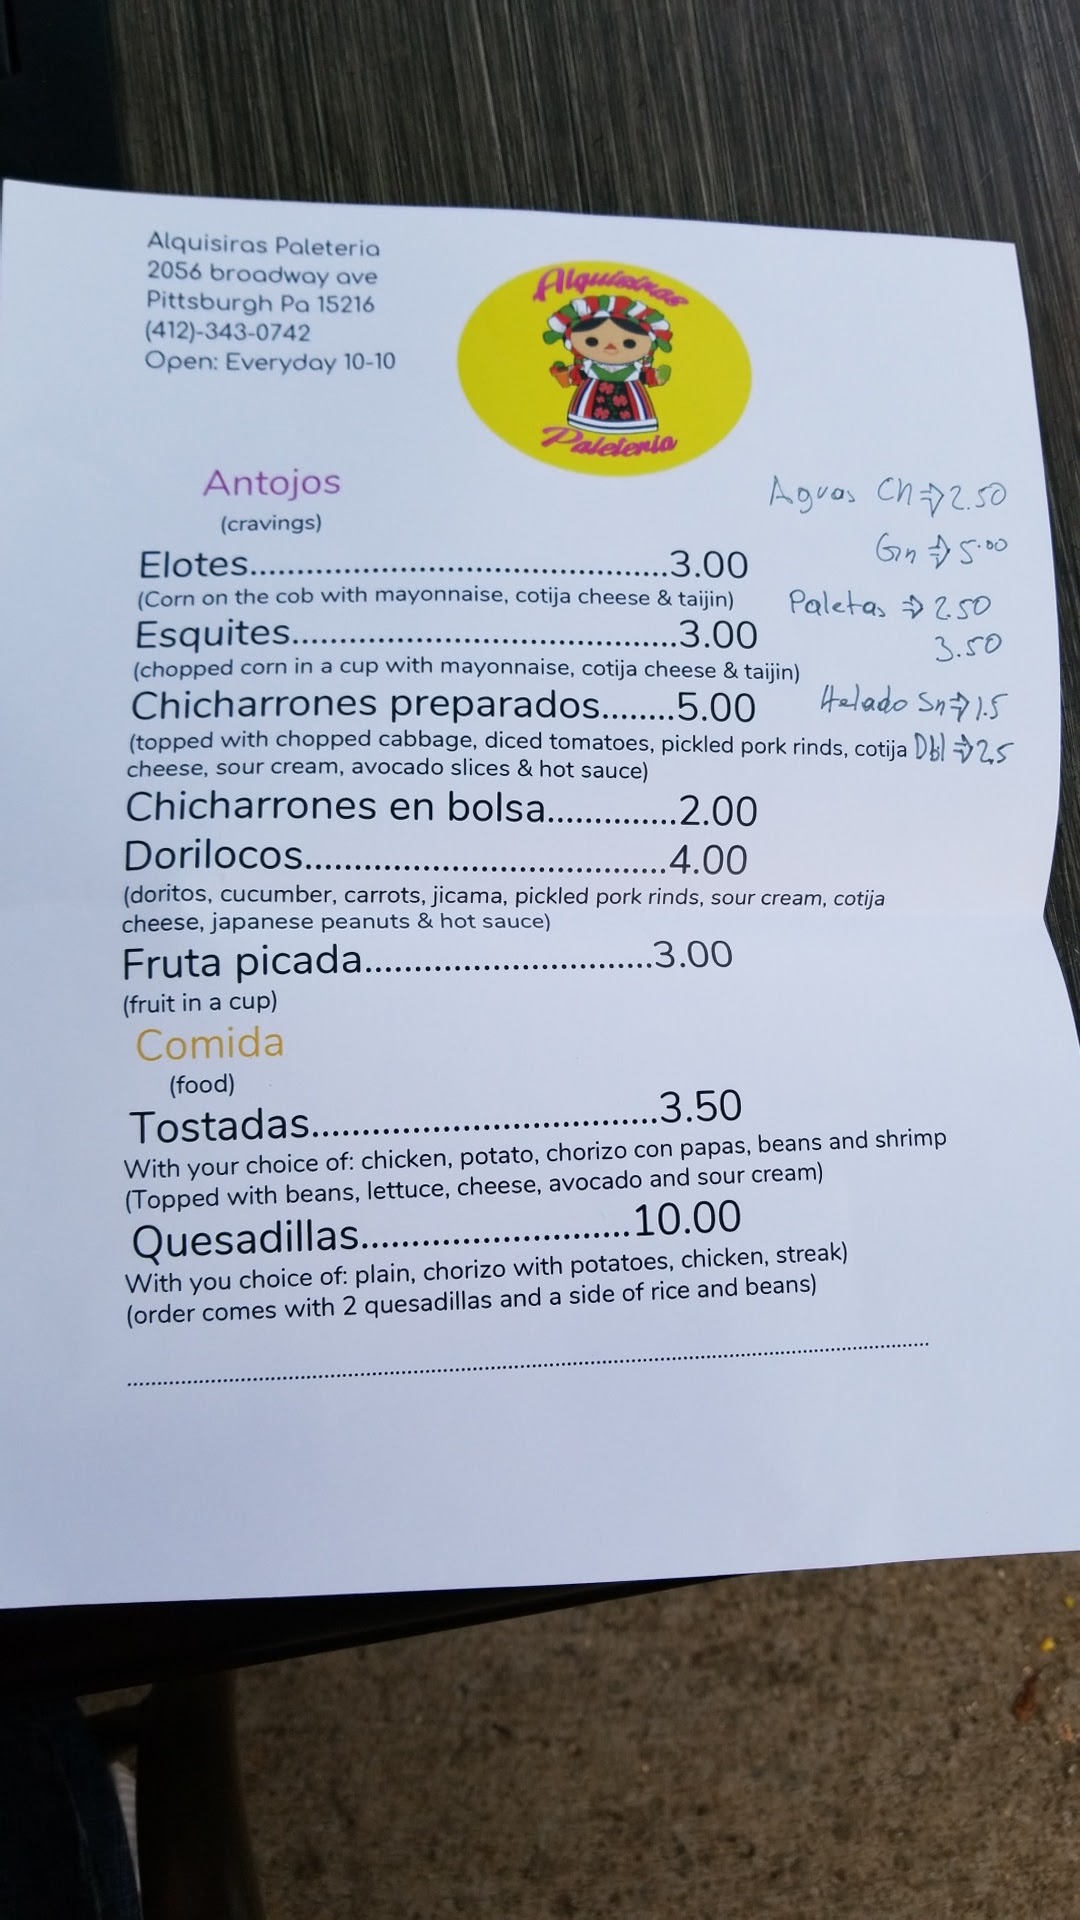 Alquisiras Paleteria
2056 broadway ave
Pittsburgh Pa 15216
(412)-343-0742
Open: Everyday 10-10
Alquisiras
Paleteria
Antojos
(cravings)
Aguas Ch⇒2.50
Gn⇒5.00
Elotes............................................3.00
(Corn on the cob with mayonnaise, cotija cheese & taijin)
Paletas ⇒ 2.50
3.50
Esquites.........................................3.00
(chopped corn in a cup with mayonnaise, cotija cheese & taijin)
Chicharrones preparados........5.00
Helado Sn⇒1.5
Dbl⇒2.5
(topped with chopped cabbage, diced tomatoes, pickled pork rinds, cotija
cheese, sour cream, avocado slices & hot sauce)
Chicharrones en bolsa..............2.00
Dorilocos.......................................4.00
(doritos, cucumber, carrots, jicama, pickled pork rinds, sour cream, cotija
cheese, japanese peanuts & hot sauce)
Fruta picada...............................3.00
(fruit in a cup)
Comida
(food)
Tostadas.....................................3.50
With your choice of: chicken, potato, chorizo con papas, beans and shrimp
(Topped with beans, lettuce, cheese, avocado and sour cream)
Quesadillas.............................10.00
With you choice of: plain, chorizo with potatoes, chicken, streak)
(order comes with 2 quesadillas and a side of rice and beans)